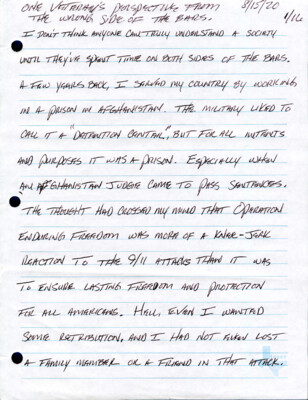 ONE VETERAN'S PERSPECTIVE FROM 8/15/20
THE WRONG SIDE OF THE BARS. 1/16
I DON'T THINK ANYONE CAN TRULY UNDERSTAND A SOCIETY
UNTIL THEY'VE SPENT TIME ON BOTH SIDES OF THE BARS.
A FEW YEARS BACK, I SERVED MY COUNTRY BY WORKING
IN A PRISON IN AFGHANISTAN. THE MILITARY LIKED TO
CALL IT A "DETENTION CENTER," BUT FOR ALL INTENTS
AND PURPOSES IT WAS A PRISON. ESPECIALLY WHEN
AN AFGHANISTAN JUDGE CAME TO PASS SENTANCES.
THE THOUGHT HAD CROSSED MY MIND THAT OPERATION
ENDURING FREEDOM WAS MORE OF A KNEE-JERK
REACTION TO THE 9/11 ATTACKS THAN IT WAS
TO ENSURE LASTING FREEDOM AND PROTECTION
FOR ALL AMERICANS. HELL, EVEN I WANTED
SOME RETRIBUTION, AND I HAD NOT EVEN LOST
A FAMILY MEMBER OR A FRIEND IN THAT ATTACK.